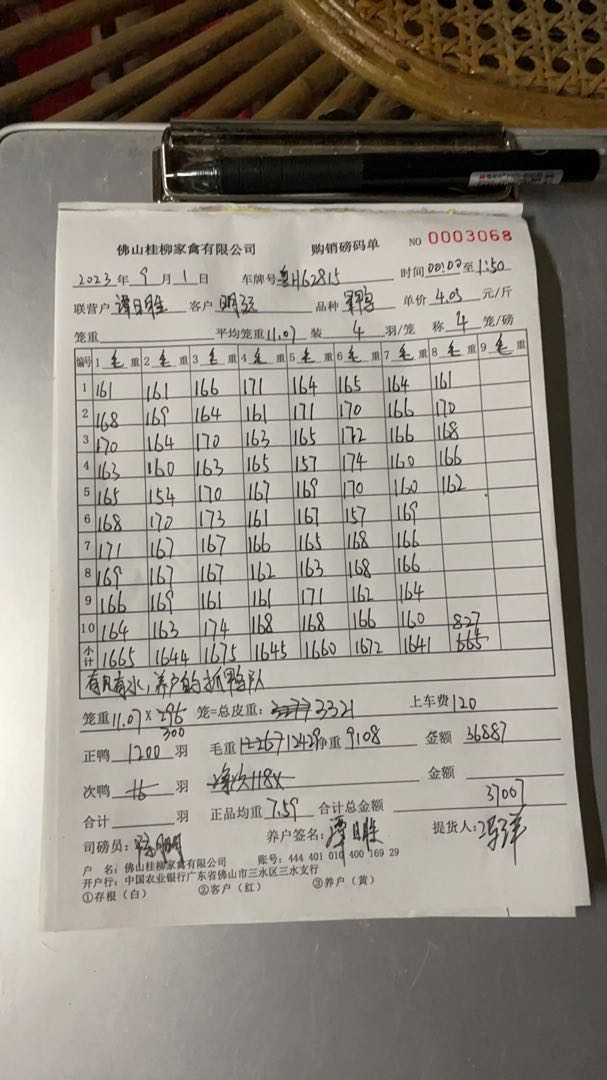 佛山桂柳家禽有限公司 购销磅码单 NO 0003068
2023年 9 月 1 日 车牌号 粤H62815 时间 00:00 至 1:50
联营户 谭日胜 客户 明强 品种 单价 4.05 元/斤
笼重 平均笼重 11.07 装 4 羽/笼 称 4 笼/磅
编号 1 毛 重 2 毛 重 3 毛 重 4 毛 重 5 毛 重 6 毛 重 7 毛 重 8 毛 重 9 毛 重
1 161 161 166 171 164 165 164 161
2 168 169 164 161 171 170 166 170
3 170 164 170 163 165 172 166 168
4 163 160 163 165 157 174 160 166
5 165 154 170 167 169 170 160 162
6 168 170 173 161 167 157 169
7 171 167 167 166 165 168 166
8 169 167 167 162 163 168 166
9 166 169 161 161 171 162 164
10 164 163 174 168 168 166 160 827
小计 1665 1644 1675 1645 1660 1672 1641 665
水,养户的抓鸭队
笼重 11.07 × 296 笼=总皮重: 3277 3321 上车费 120
300
正鸭 1200 羽 毛重 12267 12429 净重 9108 金额 36887
次鸭 16 羽 金额
合计 羽 正品均重 7.59 合计总金额 37007
司磅员: 养户签名: 谭日胜 提货人: 冯祥
户 名: 佛山桂柳家禽有限公司 账号: 444 401 010 400 169 29
开户行: 中国农业银行广东省佛山市三水区三水支行
①存根(白) ②客户(红) ③养户(黄)